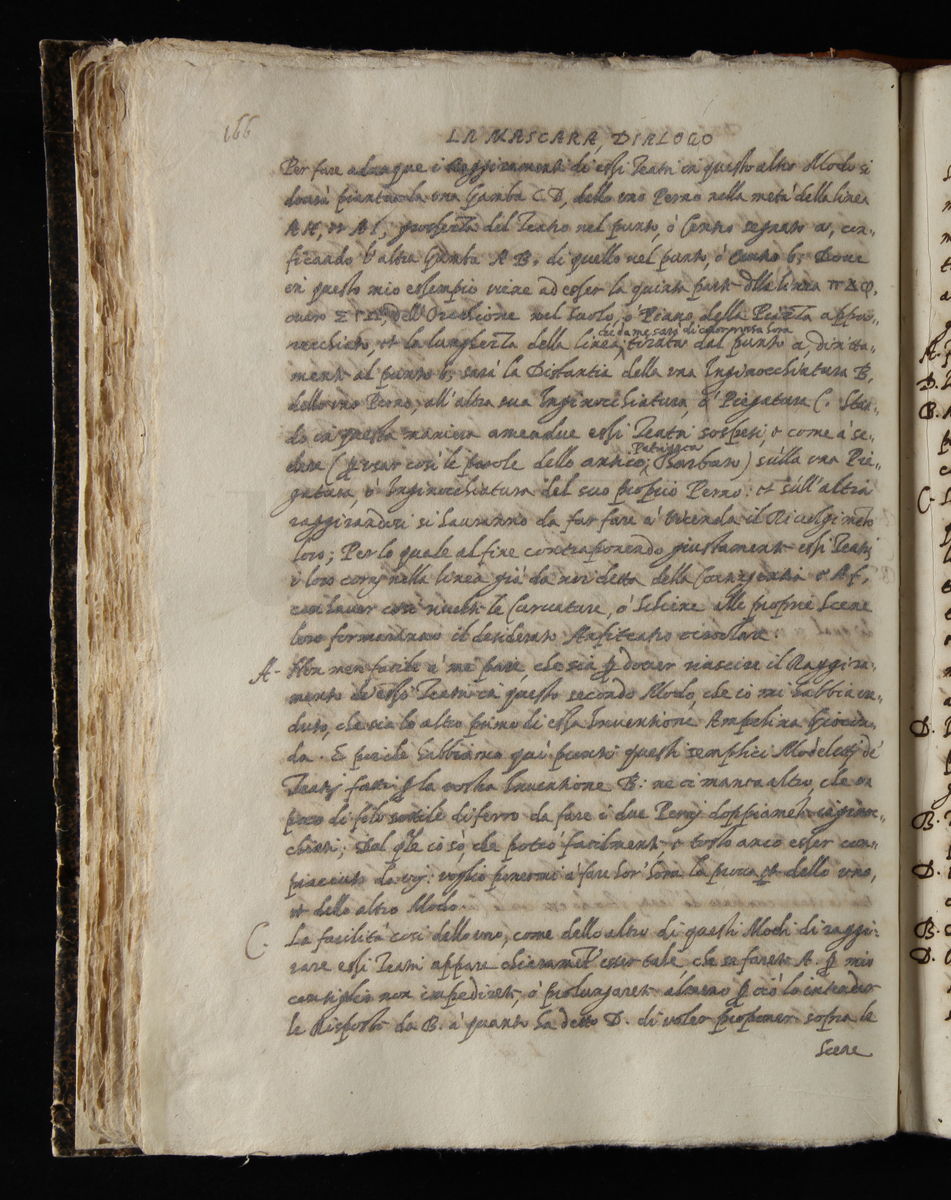 166
LA MASCARA, DIALOGO
Per fare adunque i Raggiramenti di essi Teatri in questo altro Modo si
dovrà piantar la una Gamba C D, dello uno Perno nella metà della linea
A H, et A I, grossezza del Teatro nel punto, ò Centro segnato a, con-
ficando l'altra Gamba A B. di quello nel punto, ò Centro b; Dove
in questo mio essempio viene ad esser la quinta parte della linea π Δ φ.
overo dell'Orecchione nel Suolo, ò Piano della Piazza appa-
recchiato, et la lunghezza della linea, tirata dal punto a, diritta-
che da me sarà di color
mente al punto b, sarà la Distantia della una Inginocchiatura B,
dello uno Perno, all'altra sua Inginocchiatura, ò Piegatura C. Stan-
do in questa maniera amendue essi Teatri sospesi, e come à se-
Patriarca
dere (per usar così le parole dello antico, Barbaro) sù la una Pie-
gatura, ò Inginocchiatura del suo proprio Perno: et sù l'altra
raggirandosi si havranno da far fare à vicenda il Rivolgimeto
loro; Per lo quale al fine contraponendo giustamente essi Teatri
i loro cornj nella linea già da noi detta della e A f,
con haver così rivolti le Curvature, ò Schiene alle proprie Scene
loro formeranno il desiderato Anfiteatro circolare.
A. Non men facile à me pare, che sia per dover riuscire il Raggira-
mento di essi Teatri in questo secondo Modo, che io mi habbia ve-
duto, che sia lo altro primo di essa Inventione Ampelina Giocon-
da. E poiche habbiamo quì pronti questi semplici Modeletti de'
Teatri fatti per la vostra Inventione B: ne ci manca altro, che un
poco di filo sottile di ferro da fare i due Pernj doppiamete inginoc-
chiati; Dal qle io sò, che potrò facilmente e tosto anco esser com-
piacciuto da voj: voglio pormi à fare hor' hora la pruova et dello uno,
et dello altro Modo.
C. La facilità così dello uno, come dello altro di questi Modi di raggi-
rare essi Teatri appare chiaramẽte esser tale, che se farete A. per mio
consiglio non impedirete, ò prolungarete almeno per ciò lo intender
le Risposte da B. à quanto ha detto D. di voler proponer sopra le
Scene